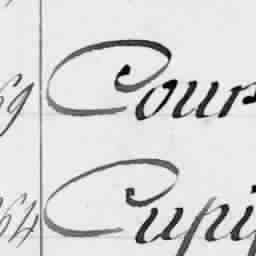 69 Cour
64 Cupi